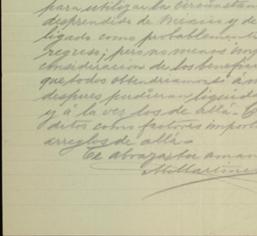 para utilizar la circunstan
desprendido de Mexico y de
ligado como probablemente
regreso; pero no menos imp
consideracion de los benefi
que todos obtendriamos á m
despues pudieran liquida
y á la vez los de allá. C
ditos como factores import
arreglos de allá.
Te abraza tu aman